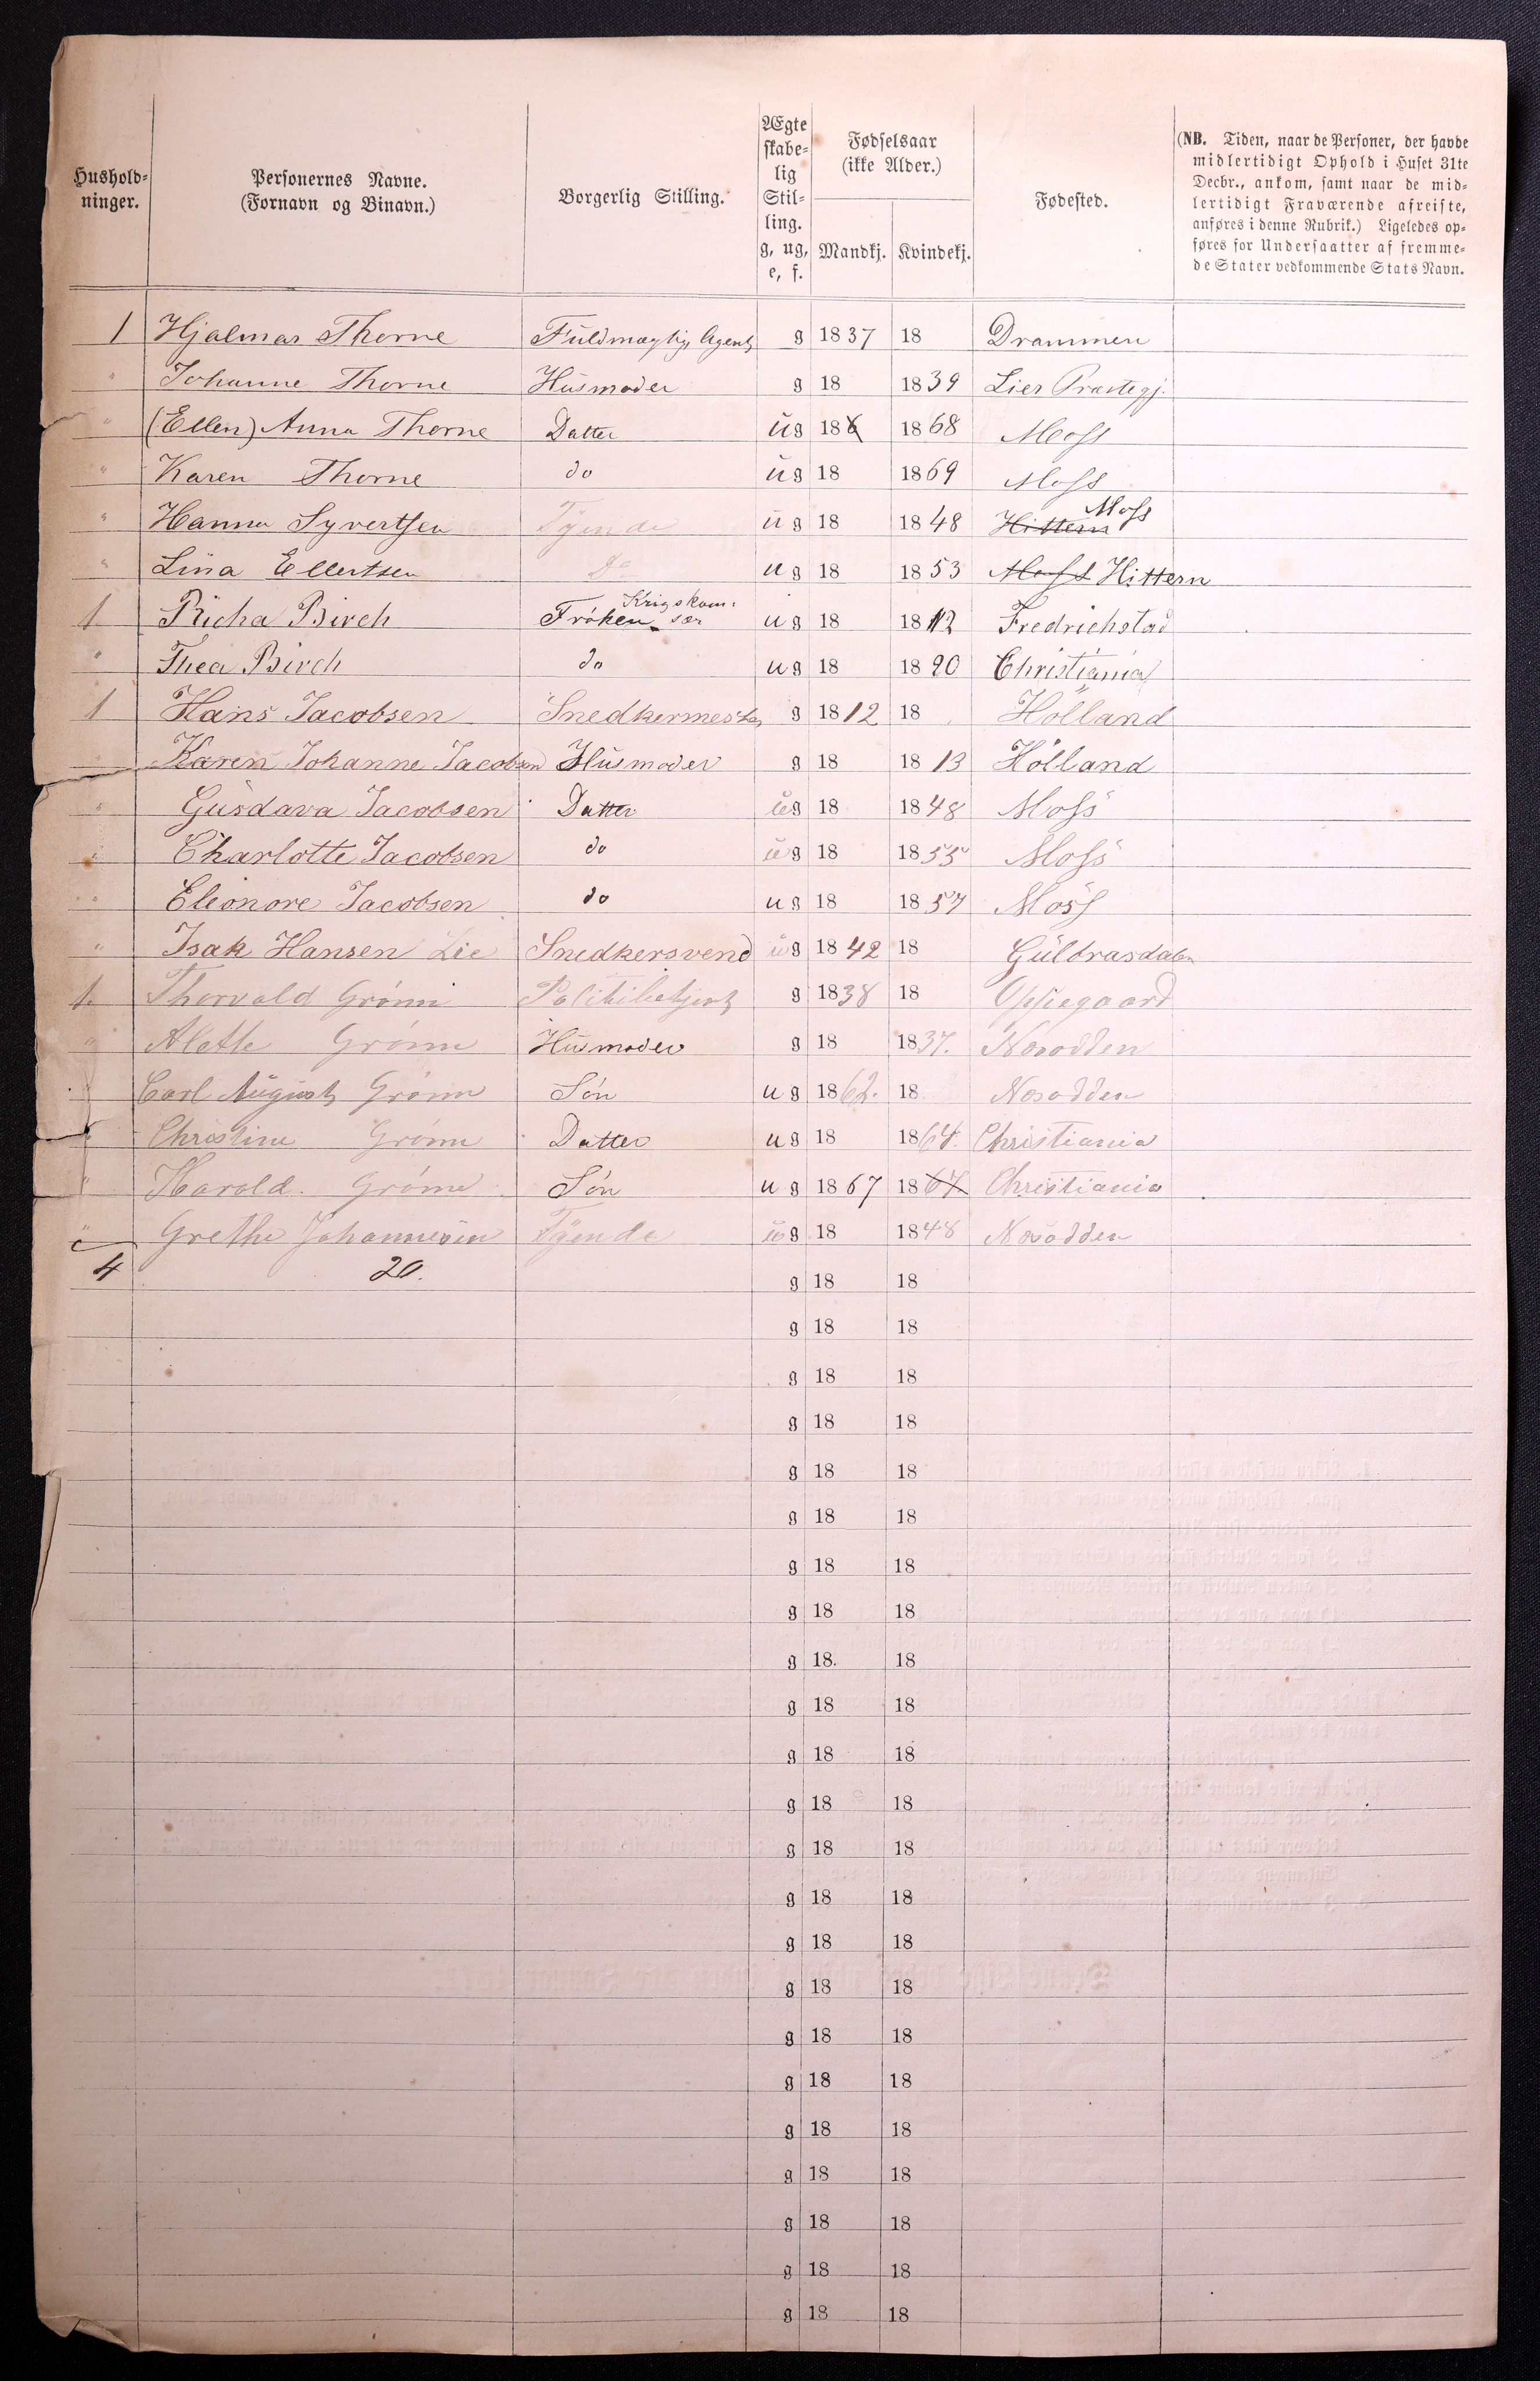 Hushold-
ninger.
Personernes Navne.
(Fornavn og Binavn.)
Borgerlig Stilling.
Ægte
skabe-
lig
Stil-
ling.
g, ug,
e, f.
Fødselsaar
(ikke Alder.)
Mandkj. Kvindekj.
Fødested.
(NB. Tiden, naar de Personer, der havde
midlertidigt Ophold i Huset 31te
Decbr., ankom, samt naar de mid-
lertidigt Fraværende afreiste,
anføres i denne Rubrik.) Ligeledes op-
føres for Undersaatter af fremme-
de Stater vedkommende Stats Navn.
1 Hjalmar Thorne Fuldmægtig, Agent g 1837 18 Drammen
" Johanne Thorne Husmoder g 18 1839 Lier Præstegj.
" (Ellen) Anna Thorne Datter ug 186 1868 Moss
" Karen Thorne do ug 18 1869 Moss
" Hanna Syvertsen Tyende ug 18 1848 Hittern Moss
" Lina Ellertsen do ug 18 1853 Moss Hittern
1 Richa Birch Frøken Krigskom: ug 18 1812 Fredrichstad
" Thea Birch do ug 18 1820 Christiania
1 Hans Jacobsen Snedkermester g 1812 18 Hölland
" Karen Johanne Jacobsen Husmoder g 18 1813 Hölland
" Gusdava Jacobsen Datter ug 18 1848 Moss
" Charlotte Jacobsen do ug 18 1855 Moss
" Eleonore Jacobsen do ug 18 1857 Moss
" Isak Hansen Lie Snedkersvend ug 1842 18 Gulbrasdalen
1. Thorvald Grönn Politibetjent g 1838 18 Oppegaard
" Alette Grönn Husmoder g 18 1837. Nesodden
" Carl August Grönn Sön ug 1862. 18 Nesodden
" Christine Grönn Datter ug 18 1864. Christiania
" Harald. Grönn Sön ug 1867 1867 Christiania
" Grethe Johannesen Tyende ug 18 1848 Nesodden
4 20. g 18 18
g 18 18
g 18 18
g 18 18
g 18 18
g 18 18
g 18 18
g 18 18
g 18. 18
g 18 18
g 18 18
g 18 18
g 18 18
g 18 18
g 18 18
g 18 18
g 18 18
g 18 18
g 18 18
g 18 18
g 18 18
g 18 18
g 18 18